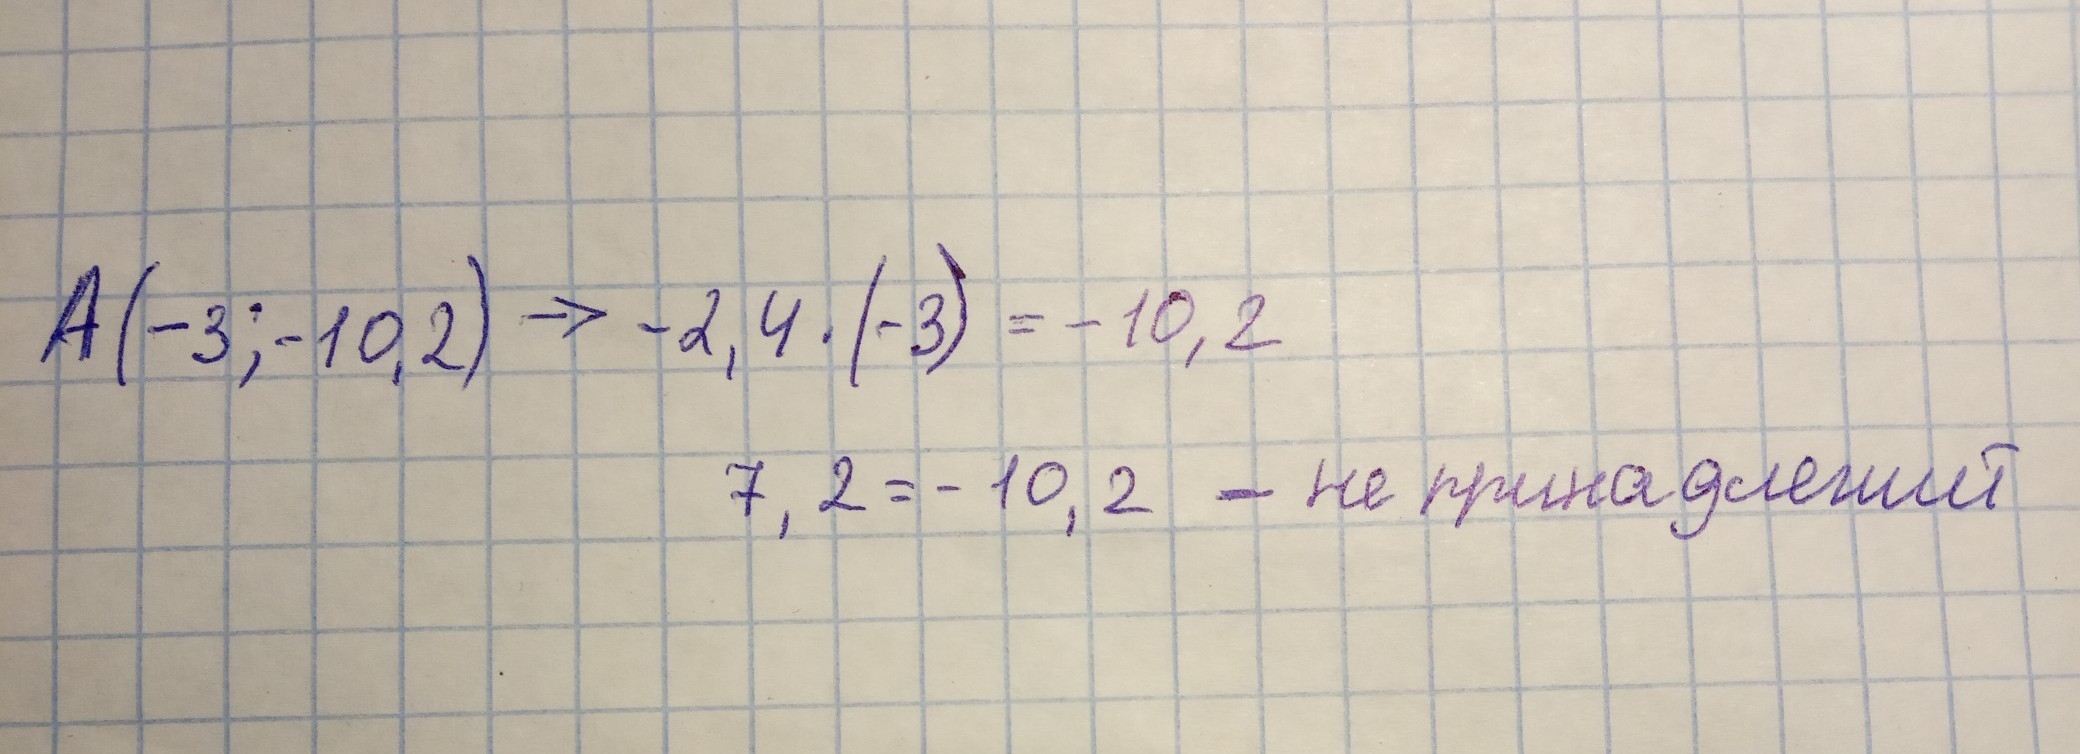 A(-3;-10,2) → -2,4·(-3) = -10,2
7,2=-10,2 - не принадлежит